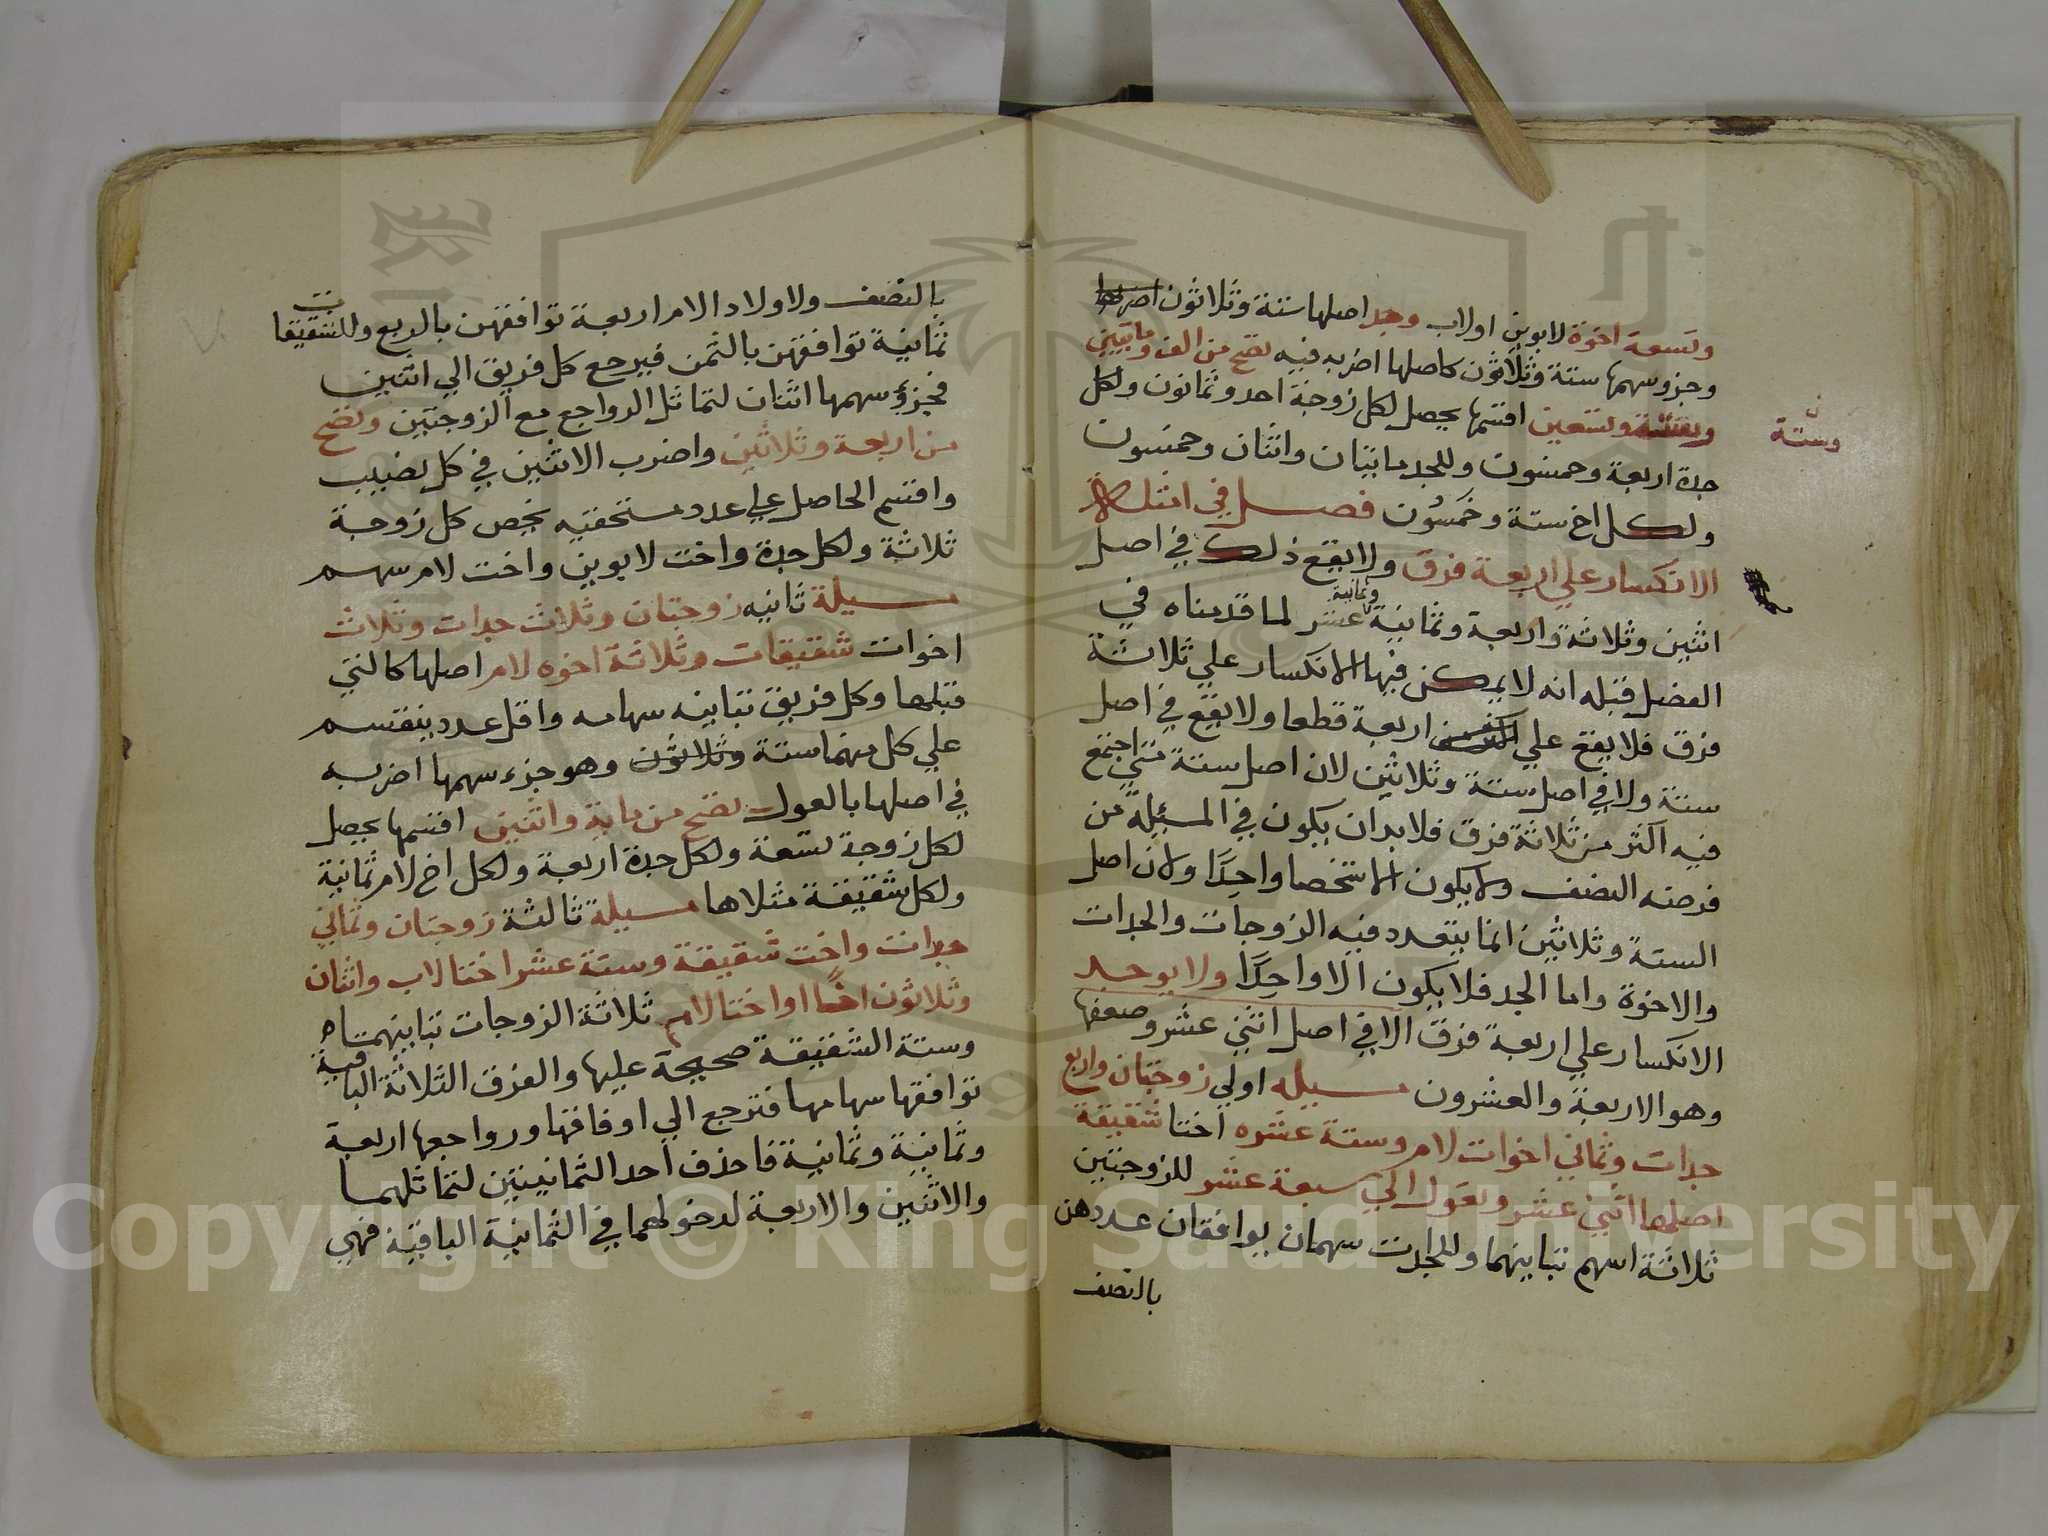 وتسعة اخوة لابوين اولاب وجد اصلها ستة وثلاثون
وجزو سهمها ستة وثلاثون كاصلها اضربه فيه تصح من الف ومايتين
وستة
وتسعين اقسمها يحصل لكل زوجة احد وثمانون ولكل
جدة اربعة وخمسون وللجد مايتان واثنان وخمسون
ولكل اخ ستة وخمسون فصل في امثلة
الانكسار علي اربعة فرق ولا يقع ذلك في اصل
اثنين وثلاثة واربعة وثمانية وثمانية عشر لما قدمناه في
الفصل قبله انه لا يمكن فيها الانكسار علي ثلاثة
فرق فلا يقع علي اربعة قطعا ولا يقع في اصل
ستة ولا في اصل ستة وثلاثين لان اصل ستة متي اجتمع
فيه اكثر من ثلاثة فرق فلا بد ان يكون في المسيلة من
فرضه النصف ولا يكون الا شخصا واحدا ولان اصل
الستة وثلاثين انما يتعدد فيه الزوجات والجدات
والاخوة واما الجد فلا يكون الا واحدا ولا يوجد
الانكسار علي اربعة فرق الا في اصل اثني عشر وضعفها
وهو الاربعة والعشرون مسيله اولي زوجتان واربع
جدات وثماني اخوات لام وستة عشره اختا شقيقة
اصلها اثني عشر وتعول الي سبعة عشر للزوجتين
ثلاثة اسهم تباينهما وللجدات سهمان يوافقان عددهن
بالنصف
بالنصف ولاولاد الام اربعة توافقهن بالربع وللشقيقات
ثمانية توافقهن بالثمن فيرجع كل فريق الي اثنين
فجزؤ سهمها اثنان لتماثل الرواجع مع الزوجتين وتصح
من اربعة وثلاثين واضرب الاثنين في كل نصيب
واقسم الحاصل علي عدد مستحقيه يخص كل زوجة
ثلاثة ولكل جدة واخت لابوين واخت لام سهم
مسيلة ثانيه زوجتان وثلاث جدات وثلاث
اخوات شقيقات وثلاثة اخوه لام اصلها كالتي
قبلها وكل فريق تباينه سهامه واقل عدد ينقسم
علي كل منهما ستة وثلاثون وهو جزء سهمها اضربه
في اصلها بالعول تصح من ماية واثنين اقسمها يحصل
لكل زوجة تسعة ولكل جدة اربعة ولكل اخ لام ثمانية
ولكل شقيقة مثلاها مسيلة ثالثة زوجتان وثماني
جدات واخت شقيقة وستة عشر اختا لاب واثنان
وثلاثون اخا او اختا لام ثلاثة الزوجات تباينهما
وستة الشقيقة صحيحة عليها والفرق الثلاثة الباقية
توافقها سهامها فترجع الي اوفاقها ورواجعها اربعة
وثمانية وثمانية فاحذف احد الثمانيتين لتماثلهما
والاثنين والاربعة لدخولهما في الثمانية الباقية فهي
Copyright © King Saud University